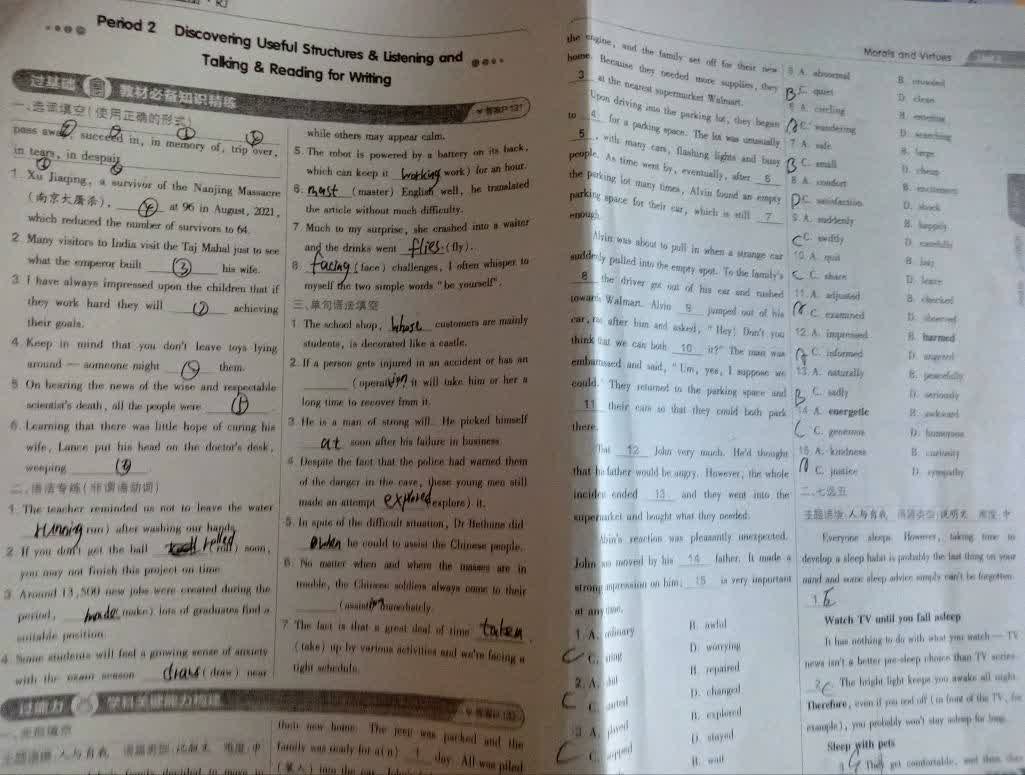 Period 2 Discovering Useful Structures & Listening and
Talking & Reading for Writing
过基础 教材必备知识精练
一、选词填空(使用正确的形式)
pass away, succeed in, in memory of, trip over,
in tears, in despair
1. Xu Jiaqing, a survivor of the Nanjing Massacre
(南京大屠杀), ④ at 96 in August, 2021,
which reduced the number of survivors to 64.
2. Many visitors to India visit the Taj Mahal just to see
what the emperor built ③ his wife.
3. I have always impressed upon the children that if
they work hard they will ② achieving
their goals.
4. Keep in mind that you don't leave toys lying
around — someone might them.
5. On hearing the news of the wise and respectable
scientist's death, all the people were
6. Learning that there was little hope of curing his
wife, Lance put his head on the doctor's desk,
weeping
二、语法专练(非谓语动词)
1. The teacher reminded us not to leave the water
running (run) after washing our hands.
2. If you don't get the ball rolled (roll) soon,
you may not finish this project on time.
3. Around 13,800 new jobs were created during the
period, made (make) lots of graduates find a
suitable position.
4. Some students will feel a growing sense of anxiety
with the exam season draws (draw) near
while others may appear calm.
5. The robot is powered by a battery on its back,
which can keep it working (work) for an hour.
6. mast (master) English well, he translated
the article without much difficulty.
7. Much to my surprise, she crashed into a waiter
and the drinks went flies (fly).
8. facing (face) challenges, I often whisper to
myself the two simple words "be yourself".
三、单句语法填空
1. The school shop, whose customers are mainly
students, is decorated like a castle.
2. If a person gets injured in an accident or has an
(operation) it will take him or her a
long time to recover from it.
3. He is a man of strong will. He picked himself
at soon after his failure in business.
4. Despite the fact that the police had warned them
of the danger in the cave, these young men still
made an attempt explored (explore) it.
5. In spite of the difficult situation, Dr Bethune did
he could to assist the Chinese people.
6. No matter when and where the masses are in
trouble, the Chinese soldiers always come to their
(assist) immediately.
7. The fact is that a great deal of time taken
(take) up by various activities and we're facing a
tight schedule.
过能力 学科关键能力构建
一、完形填空
主题语境:人与自我 语篇类型:记叙文 难度:中
their new home. The jeep was packed and the
family was ready for a(n) 1 day. All was piled
Morals and Virtues
the engine, and the family set off for their new
home. Because they needed more supplies, they
3 at the nearest supermarket Walmart.
Upon driving into the parking lot, they began
to 4 for a parking space. The lot was usually
5, with many cars, flashing lights and busy
people. As time went by, eventually, after 6
the parking lot many times, Alvin found an empty
parking space for their car, which is still 7
enough.
Alvin was about to pull in when a strange car
suddenly pulled into the empty spot. To the family's
8, the driver got out of his car and rushed
towards Walmart. Alvin 9 jumped out of his
car, ran after him and asked, "Hey! Don't you
think that we can both 10 it?" The man was
embarrassed and said, "Um, yes, I suppose we
could." They returned to the parking space and
11 their cars so that they could both park
there.
That 12 John very much. He'd thought
that his father would be angry. However, the whole
incident ended 13 and they went into the
supermarket and bought what they needed.
Alvin's reaction was pleasantly unexpected.
John was moved by his 14 father. It made a
strong impression on him; 15 is very important
at any time.
1. A. ordinary B. awful
C D. worrying
2. A. B. repaired
C C. started D. changed
3. A. played B. explored
C C. stopped D. stayed
B. wait
5. A. abnormal B. crowded
B C. quiet D. clean
6. A. circling B. entering
C. wandering D. searching
7. A. safe B. large
B C. small D. cheap
8. A. comfort B. excitement
D C. satisfaction D. shock
9. A. suddenly B. happily
C C. swiftly D. carefully
10. A. quit B. buy
C C. share D. leave
11. A. adjusted B. checked
C. examined D. observed
12. A. impressed B. harmed
C. informed D. angered
13. A. naturally B. peacefully
B C. sadly D. seriously
14. A. energetic B. awkward
C C. generous D. humorous
15. A. kindness B. curiosity
C. justice D. sympathy
二、七选五
主题语境:人与自我 语篇类型:说明文 难度:中
Everyone sleeps. However, taking time to
develop a sleep habit is probably the last thing on your
mind and some sleep advice simply can't be forgotten.
1 E
Watch TV until you fall asleep
It has nothing to do with what you watch — TV
news isn't a better pre-sleep choice than TV series.
2 C The bright light keeps you awake all night.
Therefore, even if you nod off (in front of the TV, for
example), you probably won't stay asleep for long.
Sleep with pets
3 G They get comfortable, and then they